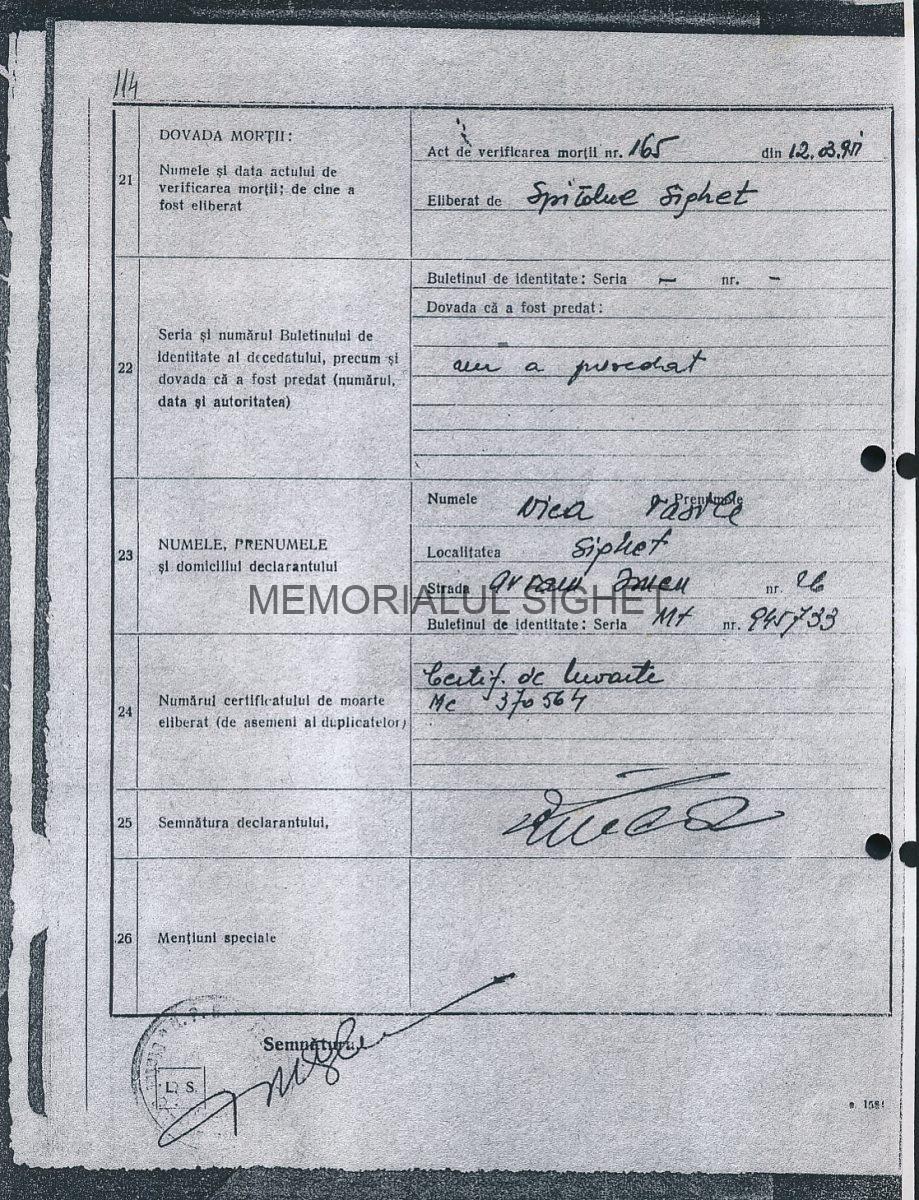 114
DOVADA MORȚII:
21
Numele și data actului de
verificarea morții; de cine a
fost eliberat
Act de verificarea morții nr. 165 din 12.03.
Eliberat de Spitalul Sighet
22
Seria și numărul Buletinului de
identitate al decedatului, precum și
dovada că a fost predat (numărul,
data și autoritatea)
Buletinul de identitate: Seria — nr. -
Dovada că a fost predat:
nu a
23
NUMELE, PRENUMELE
și domiciliul declarantului
Numele Prenumele
Vasile
Localitatea Sighet
Strada Avram Iancu nr. 26
MEMORIALUL SIGHET
Buletinul de identitate: Seria Mt nr. 945733
24
Numărul certificatului de moarte
eliberat (de asemeni al duplicatelor)
Certif. de moarte
Mc 370564
25 Semnătura declarantului,
26 Mențiuni speciale
Semnătura,
L. S.